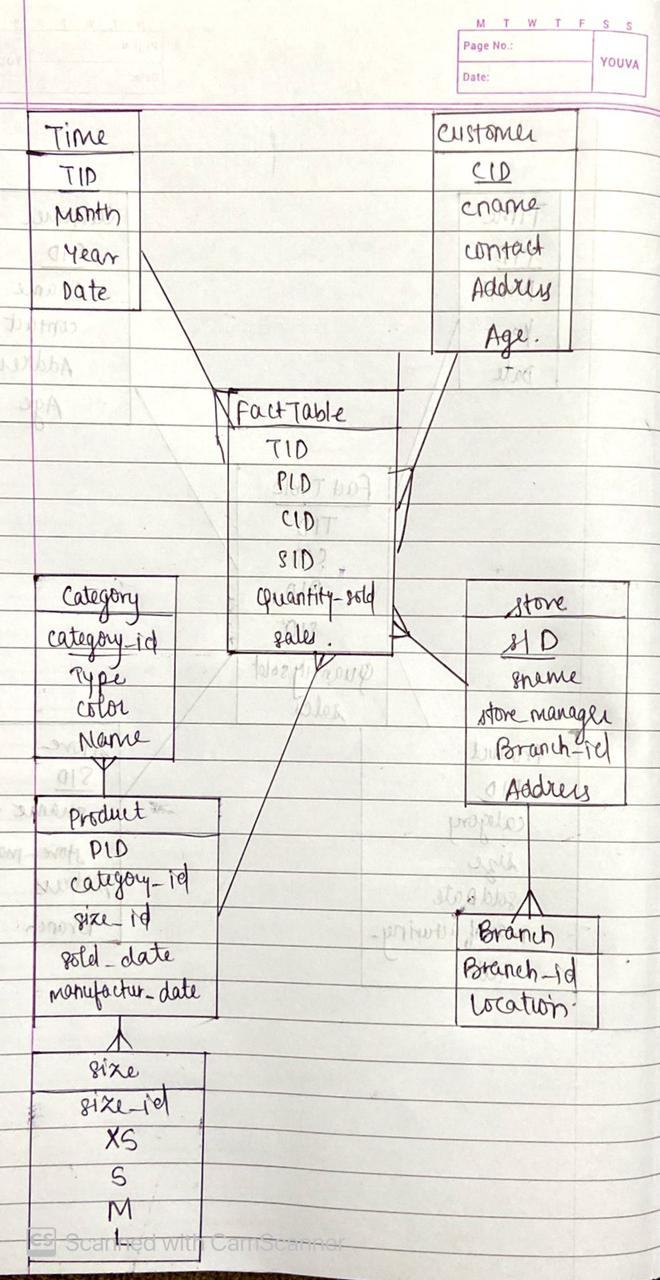 M T W T F S S
Page No.:
YOUVA
Date:
Time
TID
Month
Year
Date
Customer
CID
cname
contact
Address
Age.
Fact Table
TID
PID
CID
SID
Quantity-sold
sales.
Category
category_id
Type
color
Name
store
SID
sname
store manager
Branch-id
Address
Product
PID
category_id
size_id
sold_date
manufactur_date
Branch
Branch-id
Location
size
size_id
XS
S
M
L
CS Scanned with CamScanner